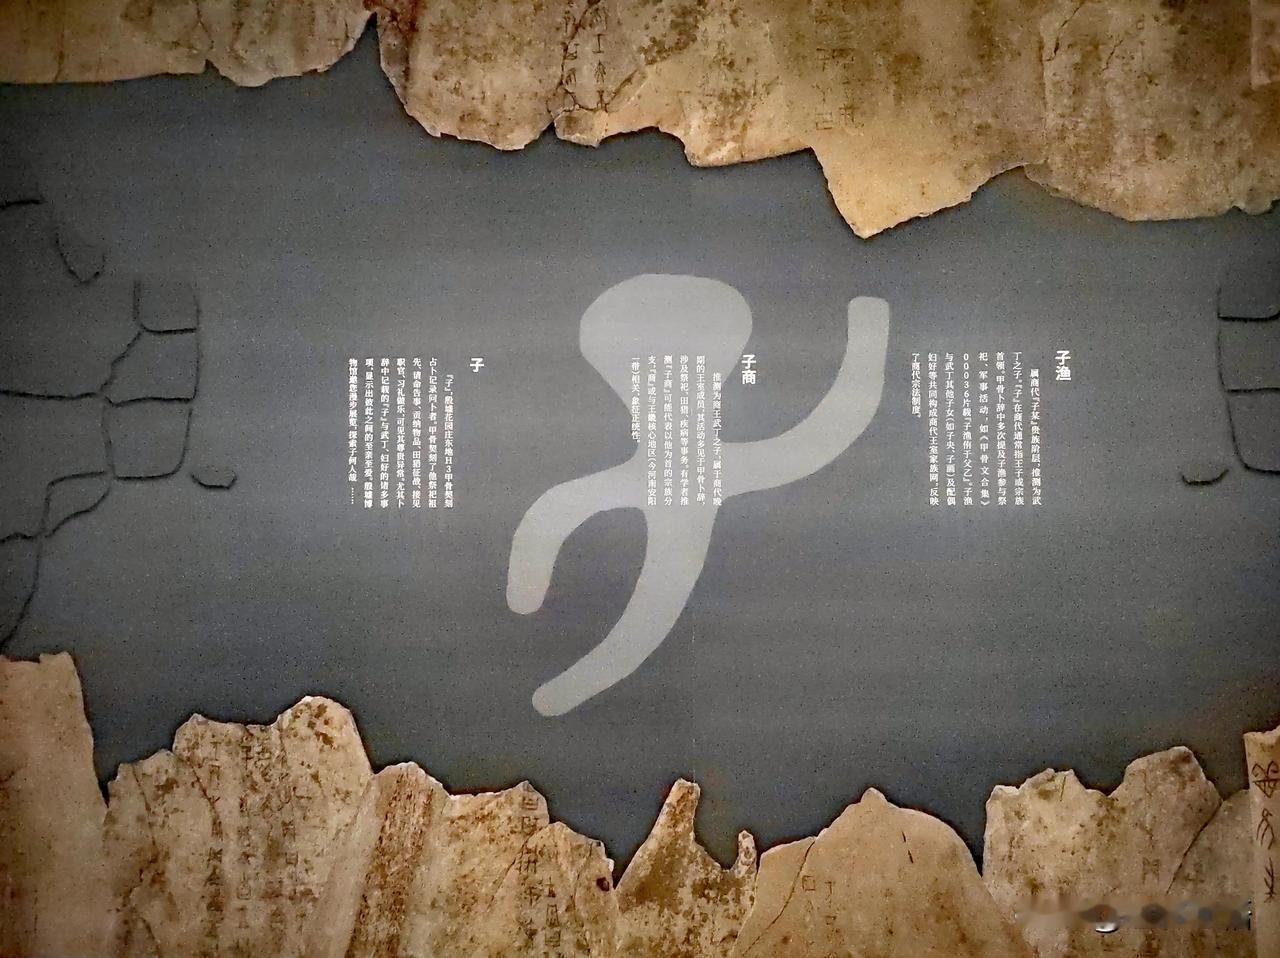 子渔
属商代“子某”贵族阶层，推测为武
丁之子。“子”在商代通常指王子或宗族
首领。甲骨卜辞中多次提及子渔参与祭
祀、军事活动，如《甲骨文合集》
00036片载“子渔侑于父乙”。子渔
与武丁其他子女（如子央、子画）及配偶
妇好等共同构成商代王室家族网，反映
了商代宗法制度。
子商
推测为商王武丁之子，属于商代晚
期的王室成员，其活动多见于甲骨卜辞，
涉及祭祀、田猎、疾病等事务。有学者推
测“子商”可能代表以他为首的宗族分
支，“商”或与王畿核心地区（今河南安阳
一带）相关，象征正统性。
子
“子”，殷墟花园庄东地H3甲骨契刻
占卜记录问卜者。甲骨契刻了他祭祀祖
先、请命告事、贡纳物品、田猎征战、接见
职官、习礼做乐，可见其尊贵异常。尤其卜
辞中记载的“子”与武丁、妇好的诸多事
项，显示出彼此之间的至亲至爱。殷墟博
物馆邀您漫步展览，探索子何人哉……